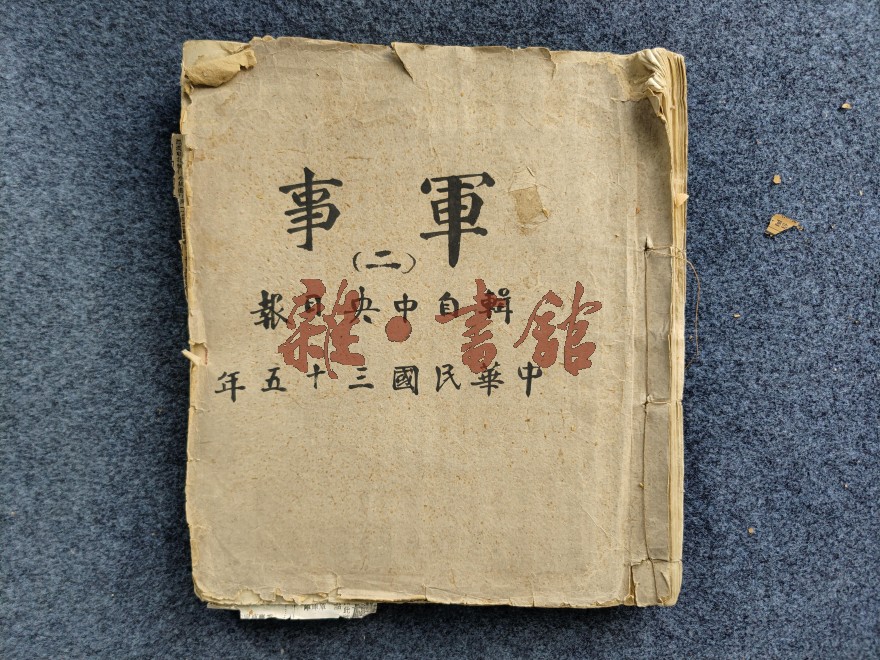 軍事
(二)
輯自中央日報
中華民國三十五年
雜·書館